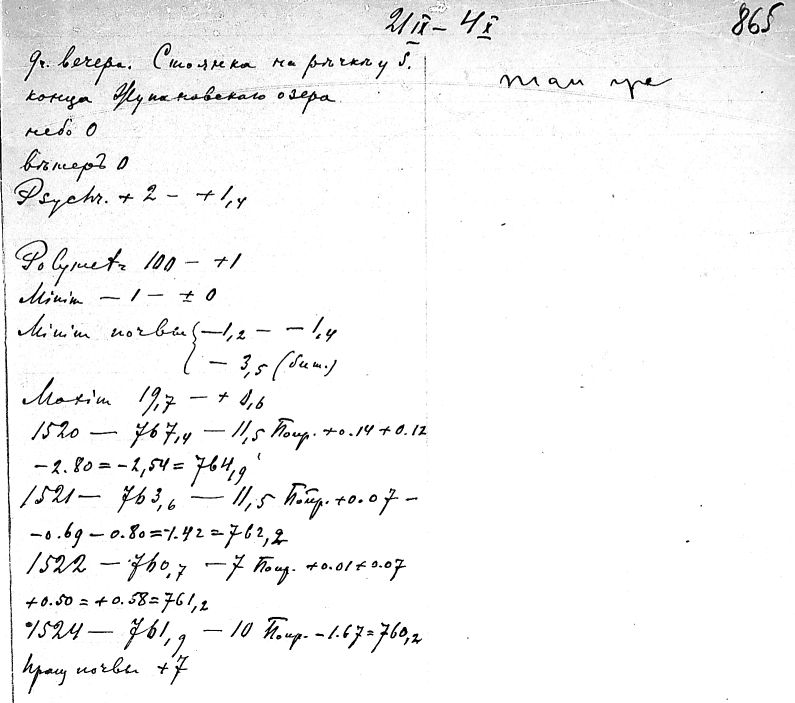 21 IX – 4 X
865
9ч. вечера. Стоянка на рѣчкѣ у S.
там же
конца Жупановского озера
небо 0
вѣтеръ 0
Psychr. + 2 – +1,4
Polymetr 100 – +1
Minim – 1 – ± 0
Minim почвы { –1,2 – –1,4
– 3,5 (бит.)
Maxim 19,7 – + 8,6
1520 – 767,4 – 11,5 Попр. +0.14 +0.12
–2.80 = –2,54 = 764,9
1521 – 763,6 – 11,5 Попр. +0.07 –
–0.69 – 0.80 = –1.42 = 762,2
1522 – 760,7 – 7 Попр. +0.01 +0.07
+0.50 = +0.58 = 761,2
1524 – 761,9 – 10 Попр. –1.67 = 760,2
почвы +7